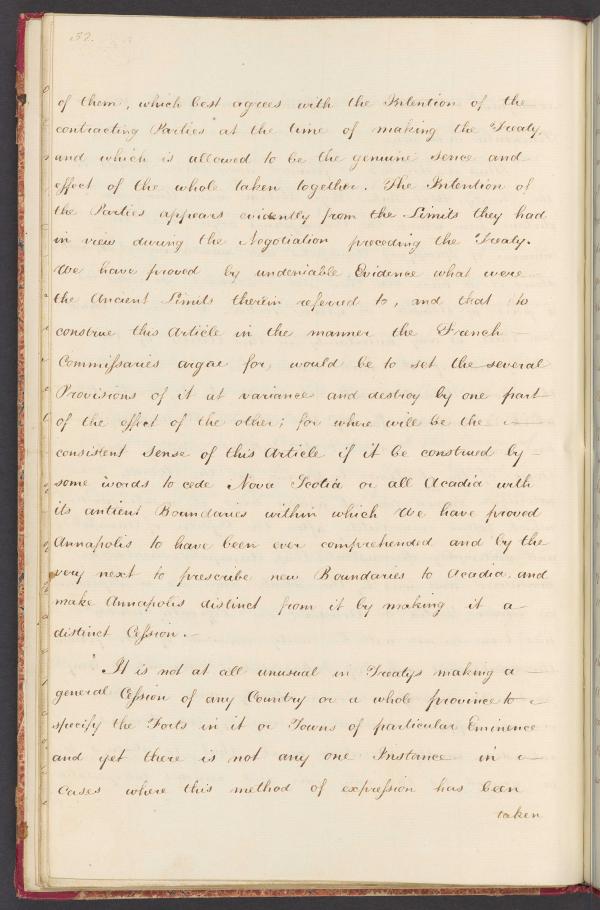 52.
of them, which best agrees with the Intention of the
contracting Parties" at the time of making the Treaty
and which is allowed to be the genuine sence and
effect of the whole taken together. The Intention of
the Parties appears evidently from the Limits they had
in view during the Negotiation preceding the Treaty.
We have proved by undeniable Evidence what were
the Ancient Limits therein referred to, and that to
construe this Article in the manner the French
Commissaries argue for, would be to set the several
Provisions of it at variance and destroy by one part
of the effect of the other; for where will be the
consistent sense of this Article if it be construed by
some words to cede Nova Scotia or all Acadia with
its antient Boundaries within which We have proved
Annapolis to have been ever comprehended and by the
very next to prescribe new Boundaries to Acadia, and
make Annapolis distinct from it by making it a
distinct Cession.
It is not at all unusual in Treatys making a
general Cession of any Country or a whole province to
specify the Forts in it or Towns of particular Eminence
and yet there is not any one Instance in
Cases where this method of expression has been
taken